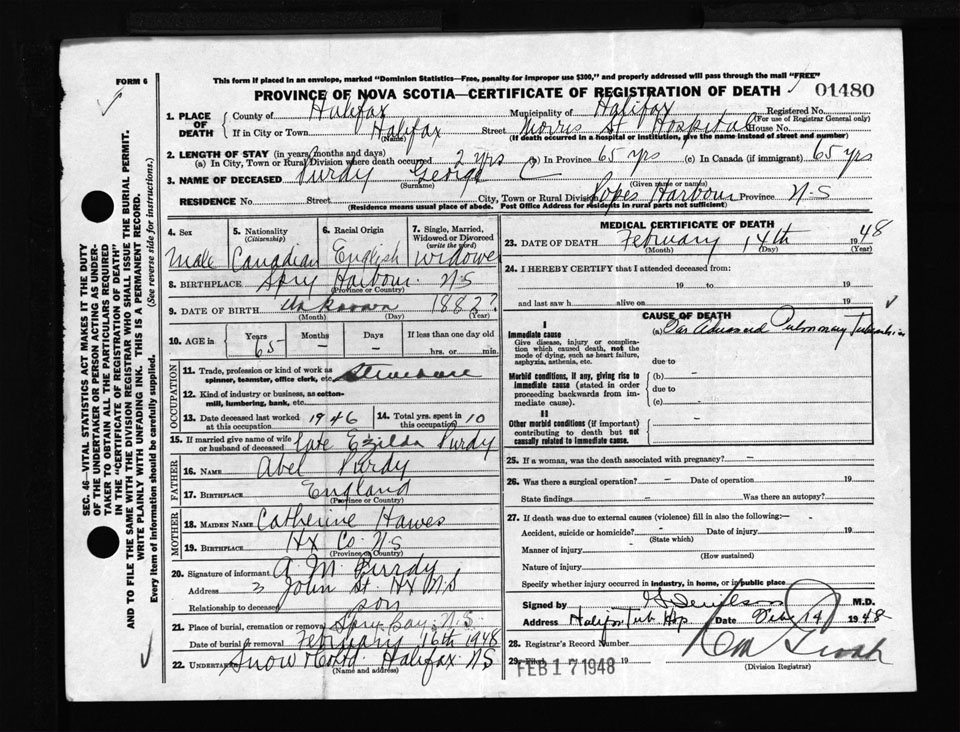 FORM 6
This form if placed in an envelope, marked "Dominion Statistics—Free, penalty for improper use $300," and properly addressed will pass through the mail "FREE"
PROVINCE OF NOVA SCOTIA—CERTIFICATE OF REGISTRATION OF DEATH 01480
1. PLACE OF DEATH { County of Halifax Municipality of Halifax Registered No. (For use of Registrar General only)
If in City or Town Halifax (Name) Street Morris St Hospital House No.
(If death occurred in a hospital or institution, give the name instead of street and number)
2. LENGTH OF STAY (in years, months and days)
(a) In City, Town or Rural Division where death occurred 2 yrs (b) In Province 65 yrs (c) In Canada (if immigrant) 65 yrs
3. NAME OF DECEASED Purdy George C
(Surname) (Given name or names)
RESIDENCE No. Street City, Town or Rural Division Popes Harbour Province N-S
(Residence means usual place of abode. Post Office Address for residents in rural parts not sufficient)
4. Sex Male
5. Nationality (Citizenship) Canadian
6. Racial Origin English
7. Single, Married, Widowed or Divorced (write the word) widower
8. BIRTHPLACE Spry Harbour N-S
(Province or Country)
9. DATE OF BIRTH unknown 1882?
(Month) (Day) (Year)
10. AGE in { Years 65 Months – Days – If less than one day old hrs. or min.
OCCUPATION
11. Trade, profession or kind of work as spinner, teamster, office clerk, etc.
12. Kind of industry or business, as cotton-mill, lumbering, bank, etc.
13. Date deceased last worked at this occupation 1946 14. Total yrs. spent in this occupation 10
15. If married give name of wife or husband of deceased Late Ezilda Purdy
FATHER
16. NAME Abel Purdy
17. BIRTHPLACE England
(Province or Country)
MOTHER
18. MAIDEN NAME Catherine Hawes
19. BIRTHPLACE Hx Co N-S
(Province or Country)
20. Signature of informant A. M. Purdy
Address 3 John St Hx N S
Relationship to deceased son
21. Place of burial, cremation or removal Spry Bay N.S
Date of burial or removal February 16th 1948
22. UNDERTAKER Snow & Co Ltd. Halifax N S
(Name and address)
MEDICAL CERTIFICATE OF DEATH
23. DATE OF DEATH February 14th 1948
(Month) (Day) (Year)
24. I HEREBY CERTIFY that I attended deceased from:
19 to 19
and last saw h alive on 19
CAUSE OF DEATH
I
Immediate cause (a) Far Advanced Pulmonary Tuberculosis
Give disease, injury or complication which caused death, not the mode of dying, such as heart failure, asphyxia, asthenia, etc.
due to
Morbid conditions, if any, giving rise to immediate cause (stated in order proceeding backwards from immediate cause). { (b) –
due to
(c) –
II
Other morbid conditions (if important) contributing to death but not causally related to immediate cause. { –
25. If a woman, was the death associated with pregnancy? –
26. Was there a surgical operation? – Date of operation 19
State findings Was there an autopsy?
27. If death was due to external causes (violence) fill in also the following:—
Accident, suicide or homicide? Date of injury 19
(State which)
Manner of injury
(How sustained)
Nature of injury
Specify whether injury occurred in industry, in home, or in public place
Signed by M.D.
Address Halifax Tub. Hosp Date Feb 14 1948
28. Registrar's Record Number
29. Filed FEB 17 1948 19
(Division Registrar)
SEC. 46—VITAL STATISTICS ACT MAKES IT THE DUTY
OF THE UNDERTAKER OR PERSON ACTING AS UNDER-
TAKER TO OBTAIN ALL THE PARTICULARS REQUIRED
IN THE "CERTIFICATE OF REGISTRATION OF DEATH"
AND TO FILE THE SAME WITH THE DIVISION REGISTRAR WHO SHALL ISSUE THE BURIAL PERMIT.
WRITE PLAINLY WITH UNFADING INK. THIS IS A PERMANENT RECORD.
Every item of information should be carefully supplied. (See reverse side for instructions.)